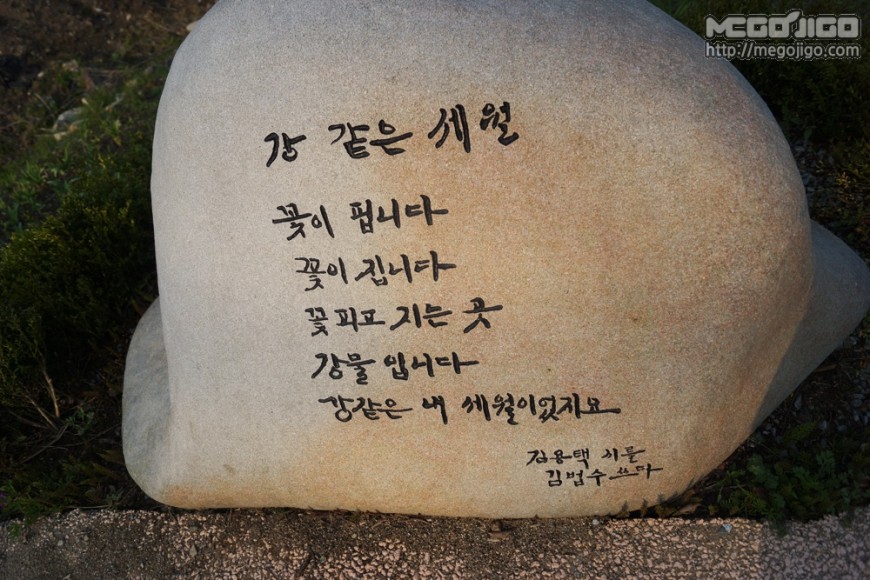 MEGOJIGO
http://megojigo.com
강 같은 세월
꽃이 핍니다
꽃이 집니다
꽃 피고 지는 곳
강물 입니다
강같은 내 세월이었지요
김용택 시를
김범수 쓰다